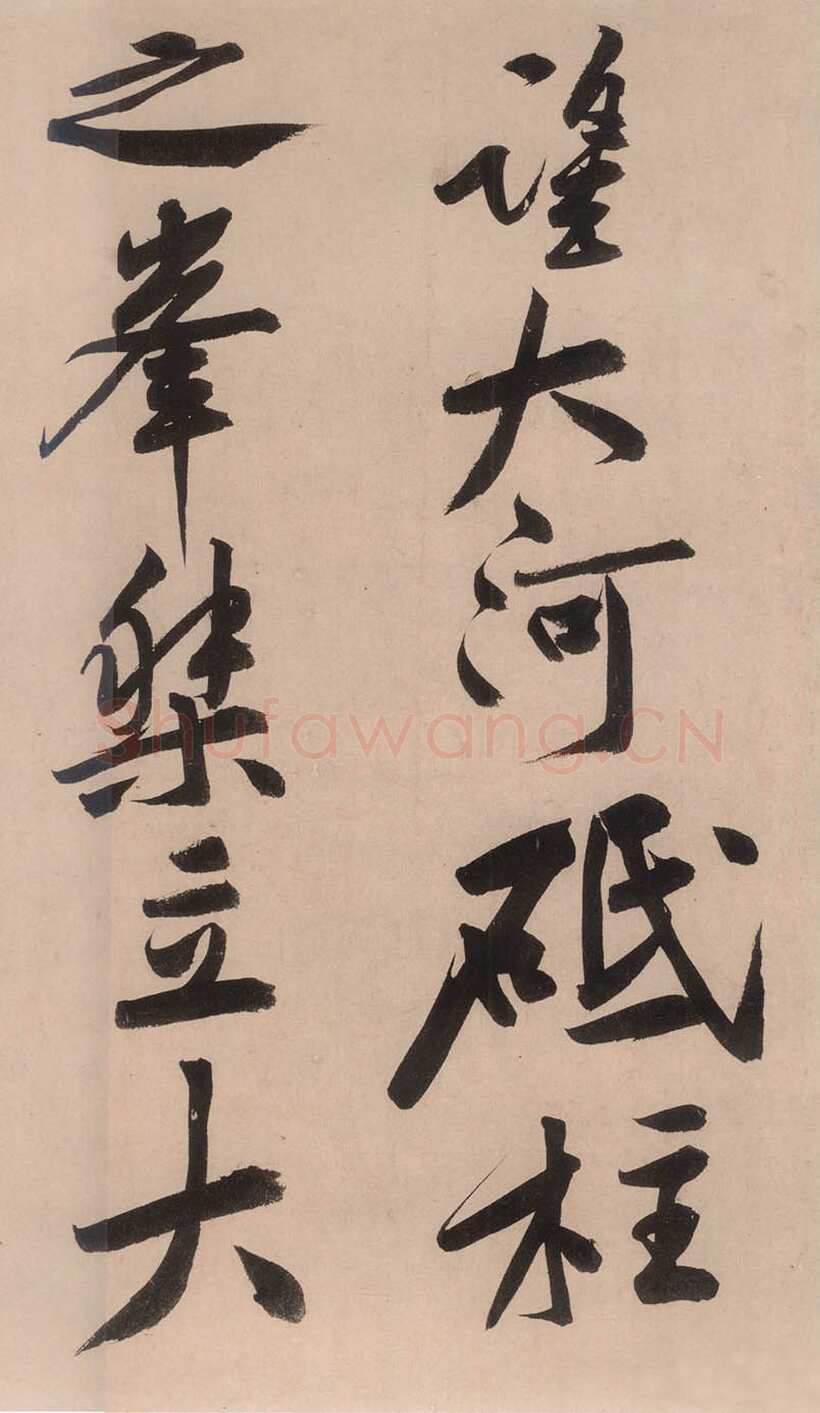 望大河砥柱
之峯桀立大
Shufawang.CN